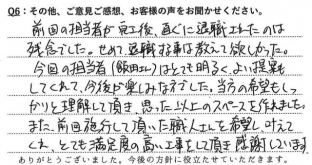 Q6：その他、ご意見ご感想、お客様の声をお聞かせください。
前回の担当者が完工後、直ぐに退職されたのは
残念でした。せめて、退職する事は教えて欲しかった。
今回の担当者（飯田さん）はとても明るく、よい提案も
してくれて、今後が楽しみな方でした。当方の希望もしっ
かりと理解して頂き、思った以上のスペースを作れました。
また、前回施行して頂いた職人さんを希望し叶えて
くれ、とても満足度の高い工事をして頂き感謝しています。
ありがとうございました。今後の方針に役立たせていただきます。